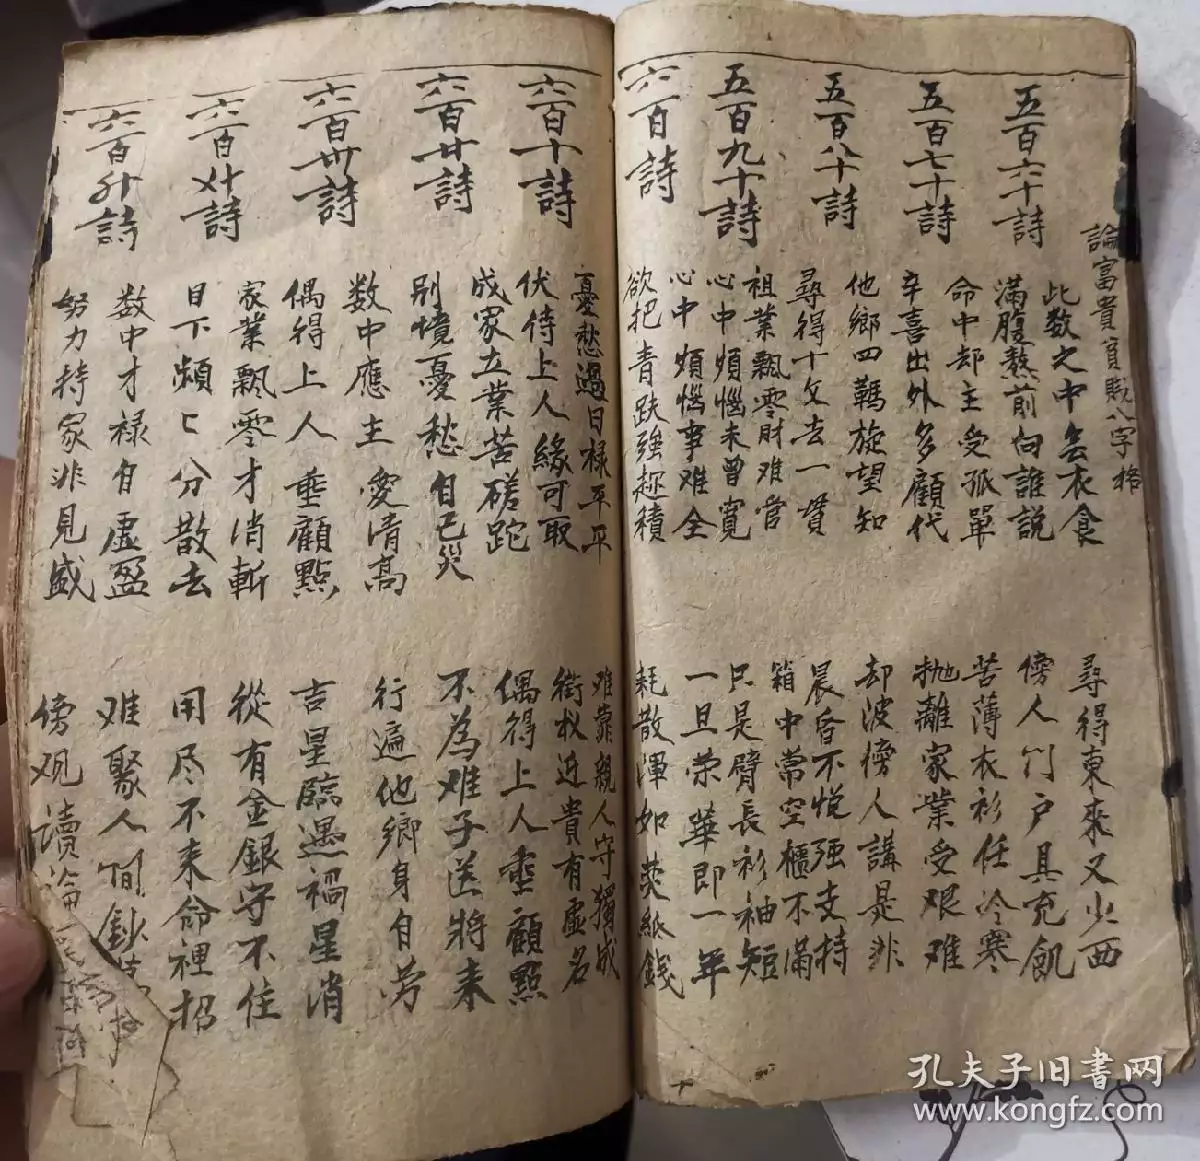 論富貴貧賤八字格
五百六十詩
此数之中無衣食 尋得東來又少西
滿腹熬煎向誰説 傍人门户具充飢
五百七十詩
命中却主受孤單 苦薄衣衫任冷寒
辛喜出外多顧代 抛離家業受艰难
五百八十詩
他鄉四鞨旋望知 却波傍人講是非
尋得十文去一貫 晨昏不悦强支持
五百九十詩
祖業飄零財难营 箱中常空櫃不滿
心中煩惱未曾寬 只是臂長衫袖短
六百詩
心中煩惱事难全 一旦荣華即一年
欲把青趺强趂積 耗散渾如焚紙錢
六百十詩
憂愁過日禄平平 难靠親人守獨成
伏待上人緣可取 衔杈近貴有虛名
六百廿詩
成家立業苦磋跎 偶得上人垂顧點
别憤憂愁自已災 不為难子送將来
六百卅詩
数中應主愛清高 行遍他鄉身自劳
偶得上人垂顧點 吉星臨遇禍星消
六百〤十詩
家業飄零才消斬 從有金銀守不住
目下頻匕分散去 用尽不来命裡招
六百詩
数中才禄自虛盈 难聚人间鈔
努力持家非見盛 傍观讀論
孔夫子旧书网
www.kongfz.com